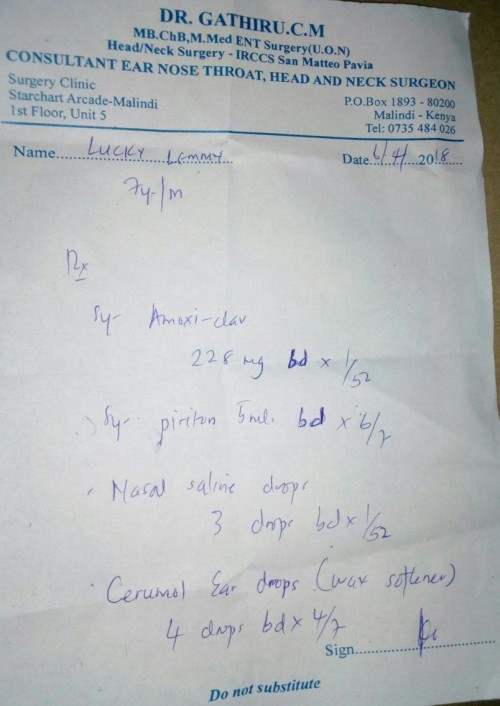 DR. GATHIRU.C.M
MB.ChB,M.Med ENT Surgery(U.O.N)
Head/Neck Surgery - IRCCS San Matteo Pavia
CONSULTANT EAR NOSE THROAT, HEAD AND NECK SURGEON
Surgery Clinic
Starchart Arcade-Malindi
1st Floor, Unit 5
P.O.Box 1893 - 80200
Malindi - Kenya
Tel: 0735 484 026
Name....LUCKY LEMMY.... Date 6/4/ 2018
7y/m
Rx
Sy- Amoxi-clav
228 mg bd x 1/52
Sy- piriton 5ml bd x 6/7
Nasal saline drops
3 drops bd x 1/52
Cerumol Ear drops (wax softener)
4 drops bd x 4/7
Sign....................
Do not substitute